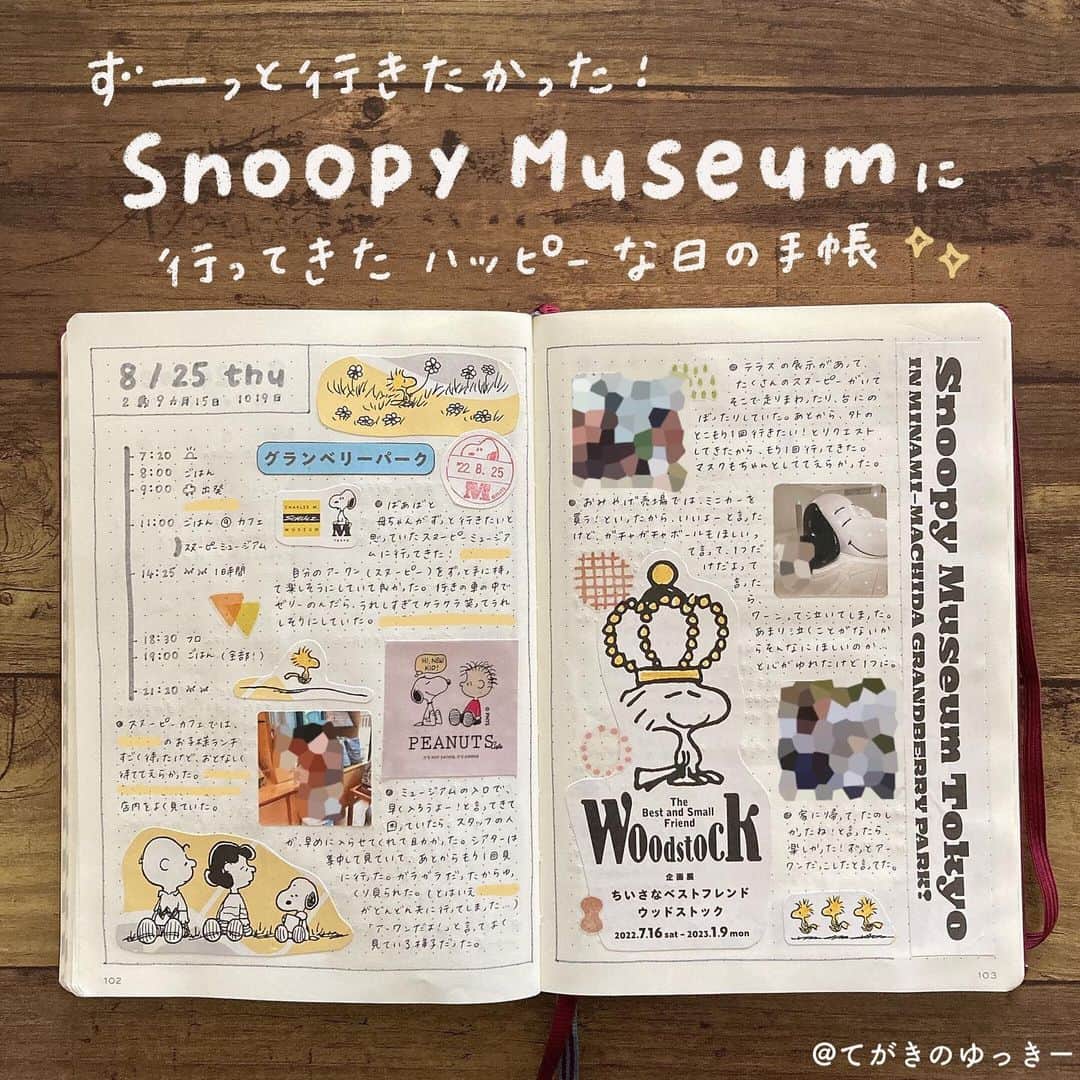 ずーっと行きたかった!
Snoopy Museumに
行ってきた ハッピーな日の手帳
8/25 thu
2歳9カ月15日 1019日
7:20
8:00 ごはん
9:00 出発
11:00 ごはん@カフェ
スヌーピーミュージアム
14:25 1時間
18:30 フロ
19:00 ごはん(全部!)
21:20
グランベリーパーク
'22 8.25
M
CHARLES M.
SCHULZ
MUSEUM
M
TOKYO
ばあばと
母ちゃんがずっと行きたいと
思っていたスヌーピーミュージア
ムに行ってきた!
自分のアーワン(スヌーピー)をずっと手に持っ
て楽しそうにしていて良かった。行きの車の中で
ゼリーのんだら、うれしすぎてケラケラ笑ってうれ
しそうにしていた。
HI, NEW
KID!
PEANUTS Cafe
スヌーピーカフェでは、
のお子様ランチ
すごく待ったけど、おとなしく
待ててえらかった。
店内をよく見ていた。
ミュージアムの入口で、
早く入ろうよー!と言ってきて
困っていたら、スタッフの人
が、早めに入らせてくれて助かった。シアターは
集中して見ていて、あとからもう1回見
に行った。ガラガラだったからゆっ
くり見られた。(とはいえ
がどんどん先に行ってしまった…)
「アーワンだよ!」と言ってよく
見ている様子だった。
102
テラスの展示があって、
たくさんのスヌーピーがいて
そこで走りまわったり、台にの
ぼったりしていた。あとから、外の
とこもう1回行きたい!とリクエスト
してきたから、もう1回行ってきた。
マスクもちゃんとしててえらかった。
おみやげ売場では、ミニカーを
買う!といったから、いいよーと言った
けど、ガチャガチャボールもほしい、っ
て言って、1つだ
けだよって
言った
ら、
ワーンって泣いてしまった。
あまり泣くことがないか
らそんなにほしいのか…
と心がゆれたけど1つに。
家に帰って、たのし
かったね!と言ったら、
楽しかった!ずっとアー
ワンだっこしたと言ってた。
The
Best and Small
Friend
Woodstock
企画展
ちいさなベストフレンド
ウッドストック
2022.7.16 sat – 2023.1.9 mon
Snoopy Museum Tokyo
IN MINAMI-MACHIDA GRANDBERRY PARK!!
103
@てがきのゆっきー